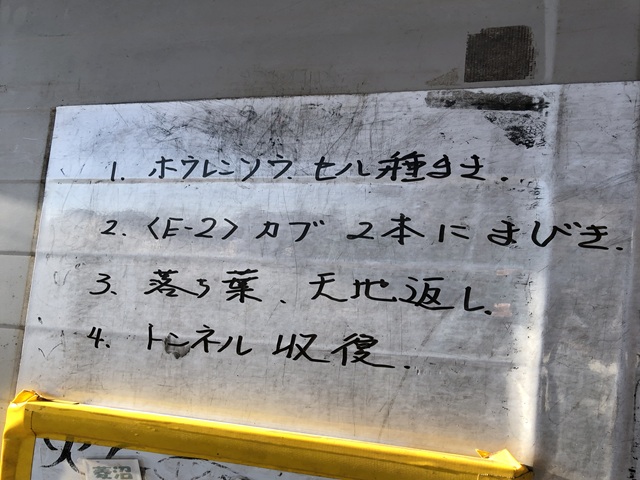 1. ホウレンソウ セル種まき.
2. 〈E-2〉カブ 2本にまびき.
3. 落ち葉、天地返し.
4. トンネル 収復.
菱沼